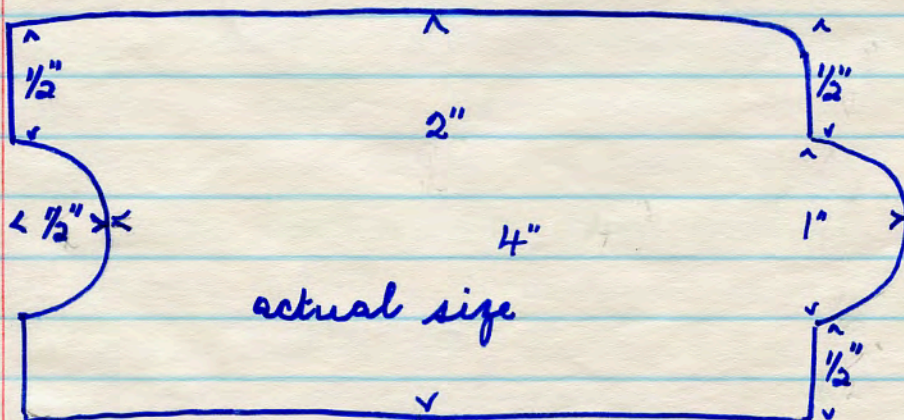 ½" ½"
2"
½" 4" 1"
actual size
½"